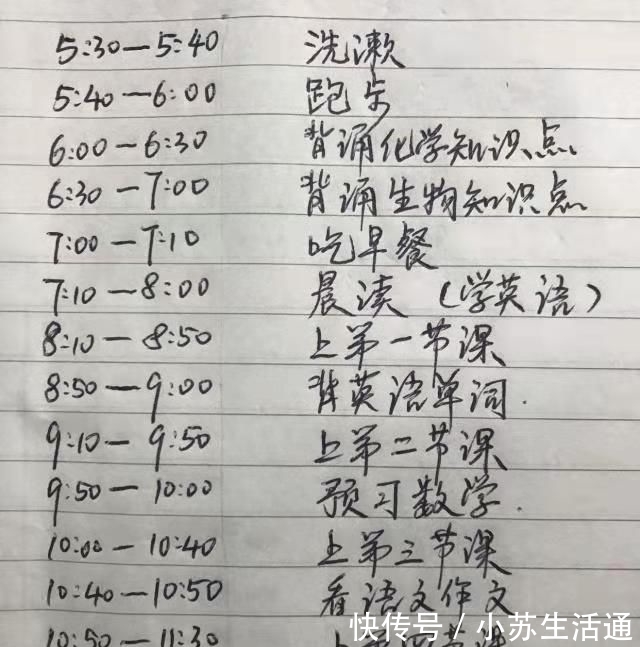 5:30—5:40 洗漱
5:40—6:00 跑步
6:00—6:30 背诵化学知识点
6:30—7:00 背诵生物知识点
7:00—7:10 吃早餐
7:10—8:00 晨读（学英语）
8:10—8:50 上第一节课
8:50—9:00 背英语单词.
9:10—9:50 上第二节课
9:50—10:00 预习数学.
10:00—10:40 上第三节课
10:40—10:50 看语文作文
10:50—11:30 上第四节课
快传号/小苏生活通